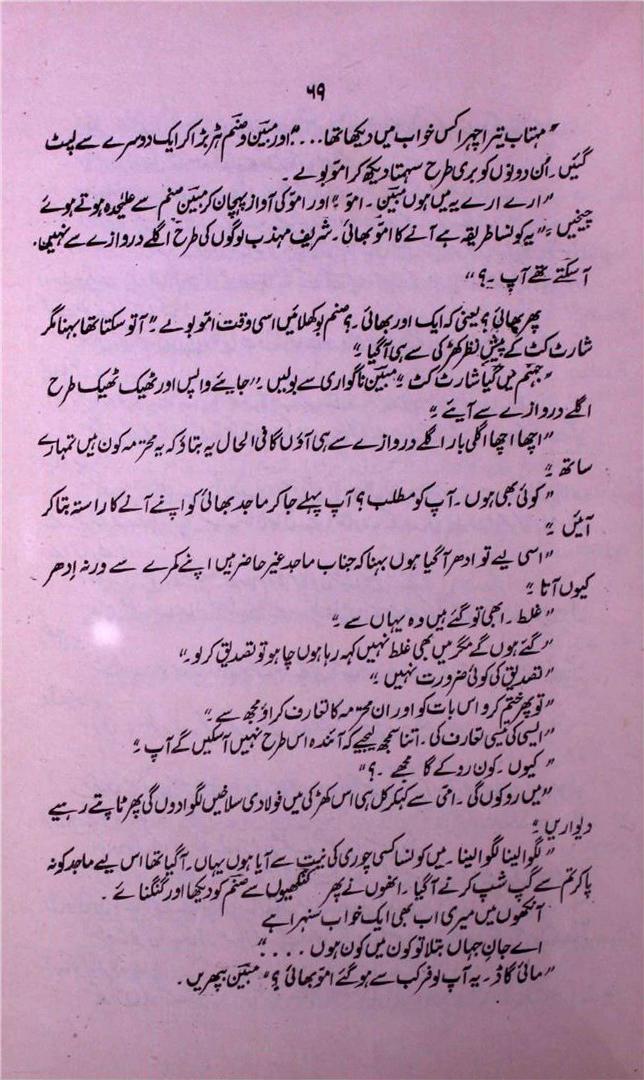 ۶۹
"مہتاب تیرا چہرا کس خواب میں دیکھا تھا..." اور مبین و صنم ہڑبڑا کر ایک دوسرے سے لپٹ
گئیں۔ اُن دونوں کو بری طرح سہمتا دیکھ کر امّو بولے۔
"ارے ارے یہ میں ہوں مبین۔ امّو" اور امّو کی آواز پہچان کر مبین صنم سے علیٰحدہ ہوتے ہوئے
چیخیں۔ "یہ کونسا طریقہ ہے آنے کا امّو بھائی۔ شریف مہذب لوگوں کی طرح اگلے دروازے سے نہیں
آ سکتے تھے آپ۔؟"
پھر بھائی؟ یعنی کہ ایک اور بھائی۔؟ صنم بوکھلائیں اسی وقت امّو بولے۔ "آ تو سکتا تھا بہنا مگر
شارٹ کٹ کے پیشِ نظر کھڑکی سے ہی آگیا۔"
"جہنم میں گیا شارٹ کٹ" مبین ناگواری سے بولیں۔ "جایئے واپس اور ٹھیک ٹھیک طرح
اگلے دروازے سے آیئے۔"
"اچھا اچھا اگلی بار اگلے دروازے سے ہی آؤں گا فی الحال یہ بتاؤ کہ یہ محترمہ کون ہیں تمہارے
ساتھ۔"
"کوئی بھی ہوں۔ آپ کو مطلب؟ آپ پہلے جا کر ماجد بھائی کو اپنے آنے کا راستہ بتا کر
آئیں۔"
"اسی لیے تو ادھر آگیا ہوں بہنا کہ جناب ماجد غیر حاضر ہیں اپنے کمرے سے ورنہ اِدھر
کیوں آتا۔"
"غلط۔ ابھی تو گئے ہیں وہ یہاں سے۔"
"گئے ہوں گے مگر میں بھی غلط نہیں کہہ رہا ہوں چاہو تو تصدیق کر لو۔"
"تصدیق کی کوئی ضرورت نہیں۔"
"تو پھر ختم کرو اس بات کو اور ان محترمہ کا تعارف کراؤ مجھ سے۔"
"ایسی کی تیسی تعارف کی۔ اتنا سمجھ لیجیے کہ آئندہ اس طرح نہیں آسکیں گے آپ۔"
"کیوں۔ کون روکے گا مجھے۔؟"
"میں روکوں گی۔ امّی سے کہہ کر کل ہی اس کھڑکی میں فولادی سلاخیں لگوا دوں گی پھر ٹاپتے رہیے
دیواریں۔"
"لگوا لینا لگوا لینا۔ میں کونسا کسی چوری کی نیت سے آیا ہوں یہاں۔ آگیا تھا اس لیے ماجد کو نہ
پا کر تم سے گپ شپ کرنے آگیا۔ انھوں نے پھر کنکھیوں سے صنم کو دیکھا اور گنگنائے۔
آنکھوں میں میری اب بھی ایک خواب سنہرا ہے
اے جانِ جہاں بتلا تو کون میں کون ہوں....."
"مائی گاڈ۔ یہ آپ لوفر کب سے ہو گئے امّو بھائی؟" مبین بپھریں۔